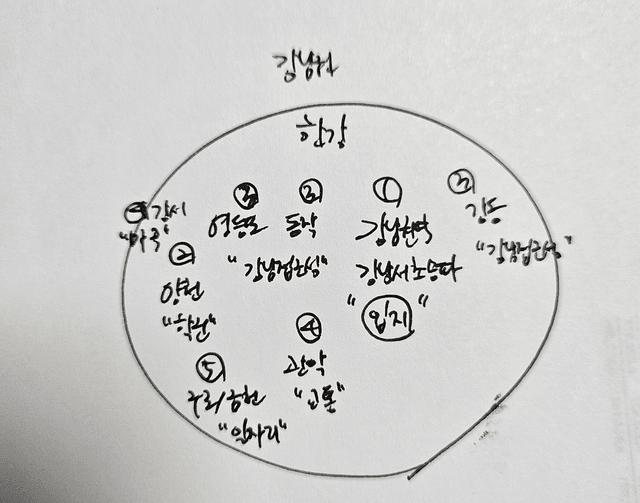 강남권
한강
④ 강서
"마곡"
② 양천
"학군"
③ 영등포
③ 동작
"강남접근성"
① 강남한강
강남서초송파
"입지"
③ 강동
"강남접근성"
④ 관악
"교통"
⑤ 구로금천
"일자리"